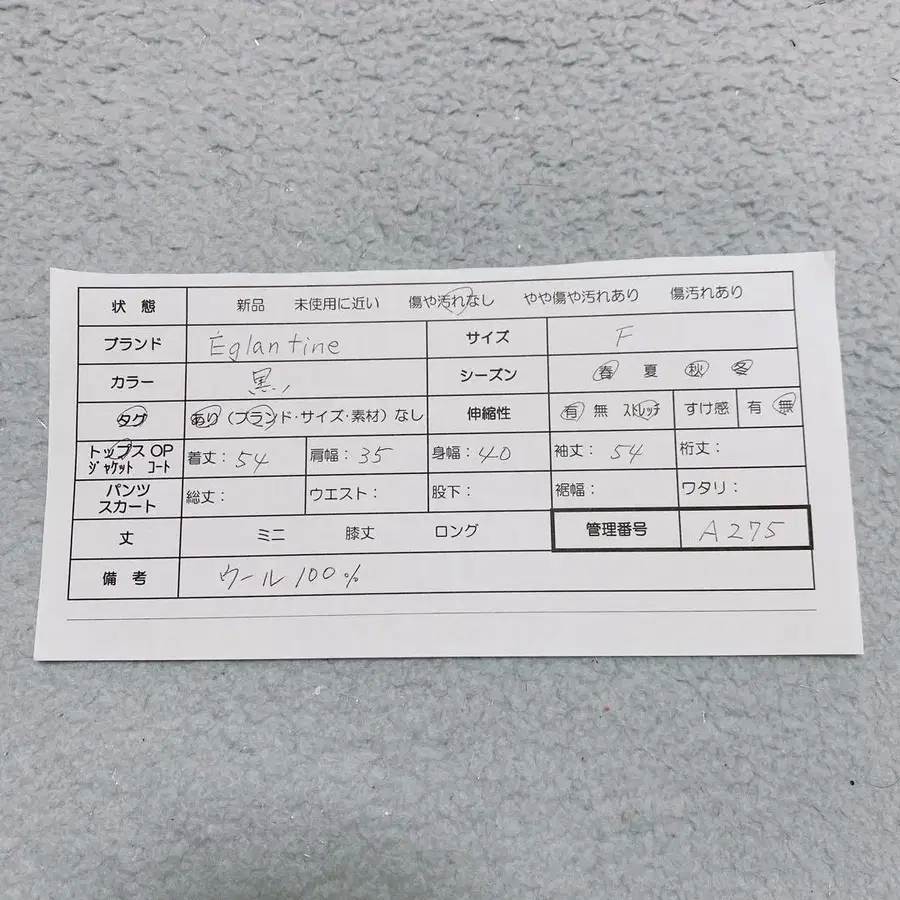 状態 新品 未使用に近い 傷や汚れなし やや傷や汚れあり 傷汚れあり
ブランド Églantine サイズ F
カラー 黒 シーズン 春 夏 秋 冬
タグ あり(ブランド・サイズ・素材)なし 伸縮性 有 無 ストレッチ すけ感 有 無
トップス OP
ジャケット コート 着丈:54 肩幅:35 身幅:40 袖丈:54 裄丈:
パンツ
スカート 総丈: ウエスト: 股下: 裾幅: ワタリ:
丈 ミニ 膝丈 ロング 管理番号 A275
備考 ウール100%